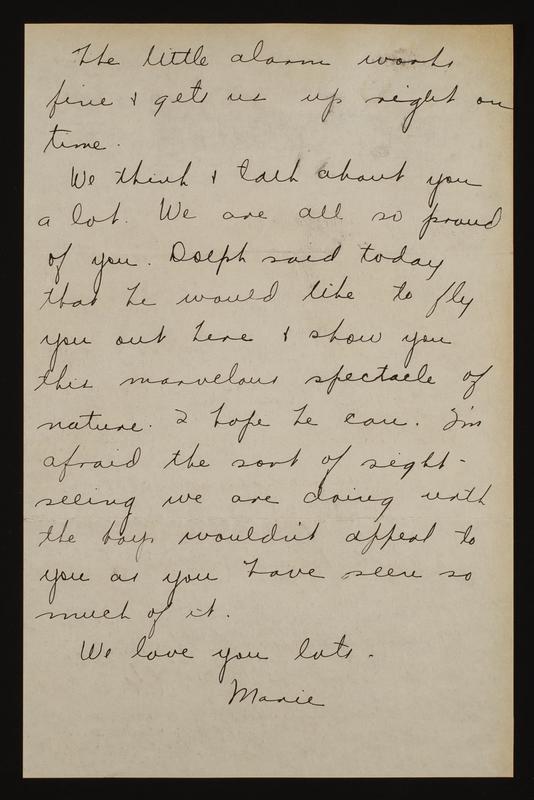 The little alarm works
fine & gets us up right on
time.
We think & talk about you
a lot. We are all so proud
of you. Dolph said today
that he would like to fly
you out here & show you
this marvelous spectacle of
nature. I hope he can. I'm
afraid the sort of sight-
seeing we are doing with
the boys wouldn't appeal to
you as you have seen so
much of it.
We love you lots.
Marie